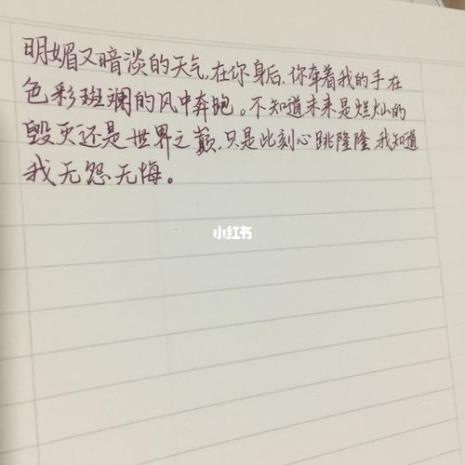 明媚又暗淡的天气,在你身后,你牵着我的手在
色彩斑斓的风中奔跑。不知道未来是烂灿的
毁灭还是世界之巅,只是此刻心跳隆隆,我知道
我无怨无悔。
小红书